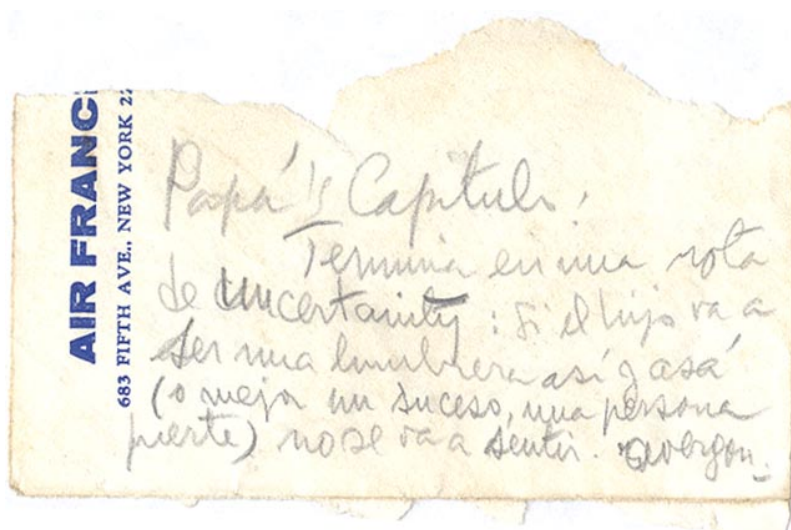 AIR FRANC
683 FIFTH AVE., NEW YORK 22
Papá's Capítulo:
Termina en una nota
de uncertainity: si el hijo va a
ser una lumbrera así y asá
(o mejor un suceso, una persona
fuerte) no se va a sentir. avergon-